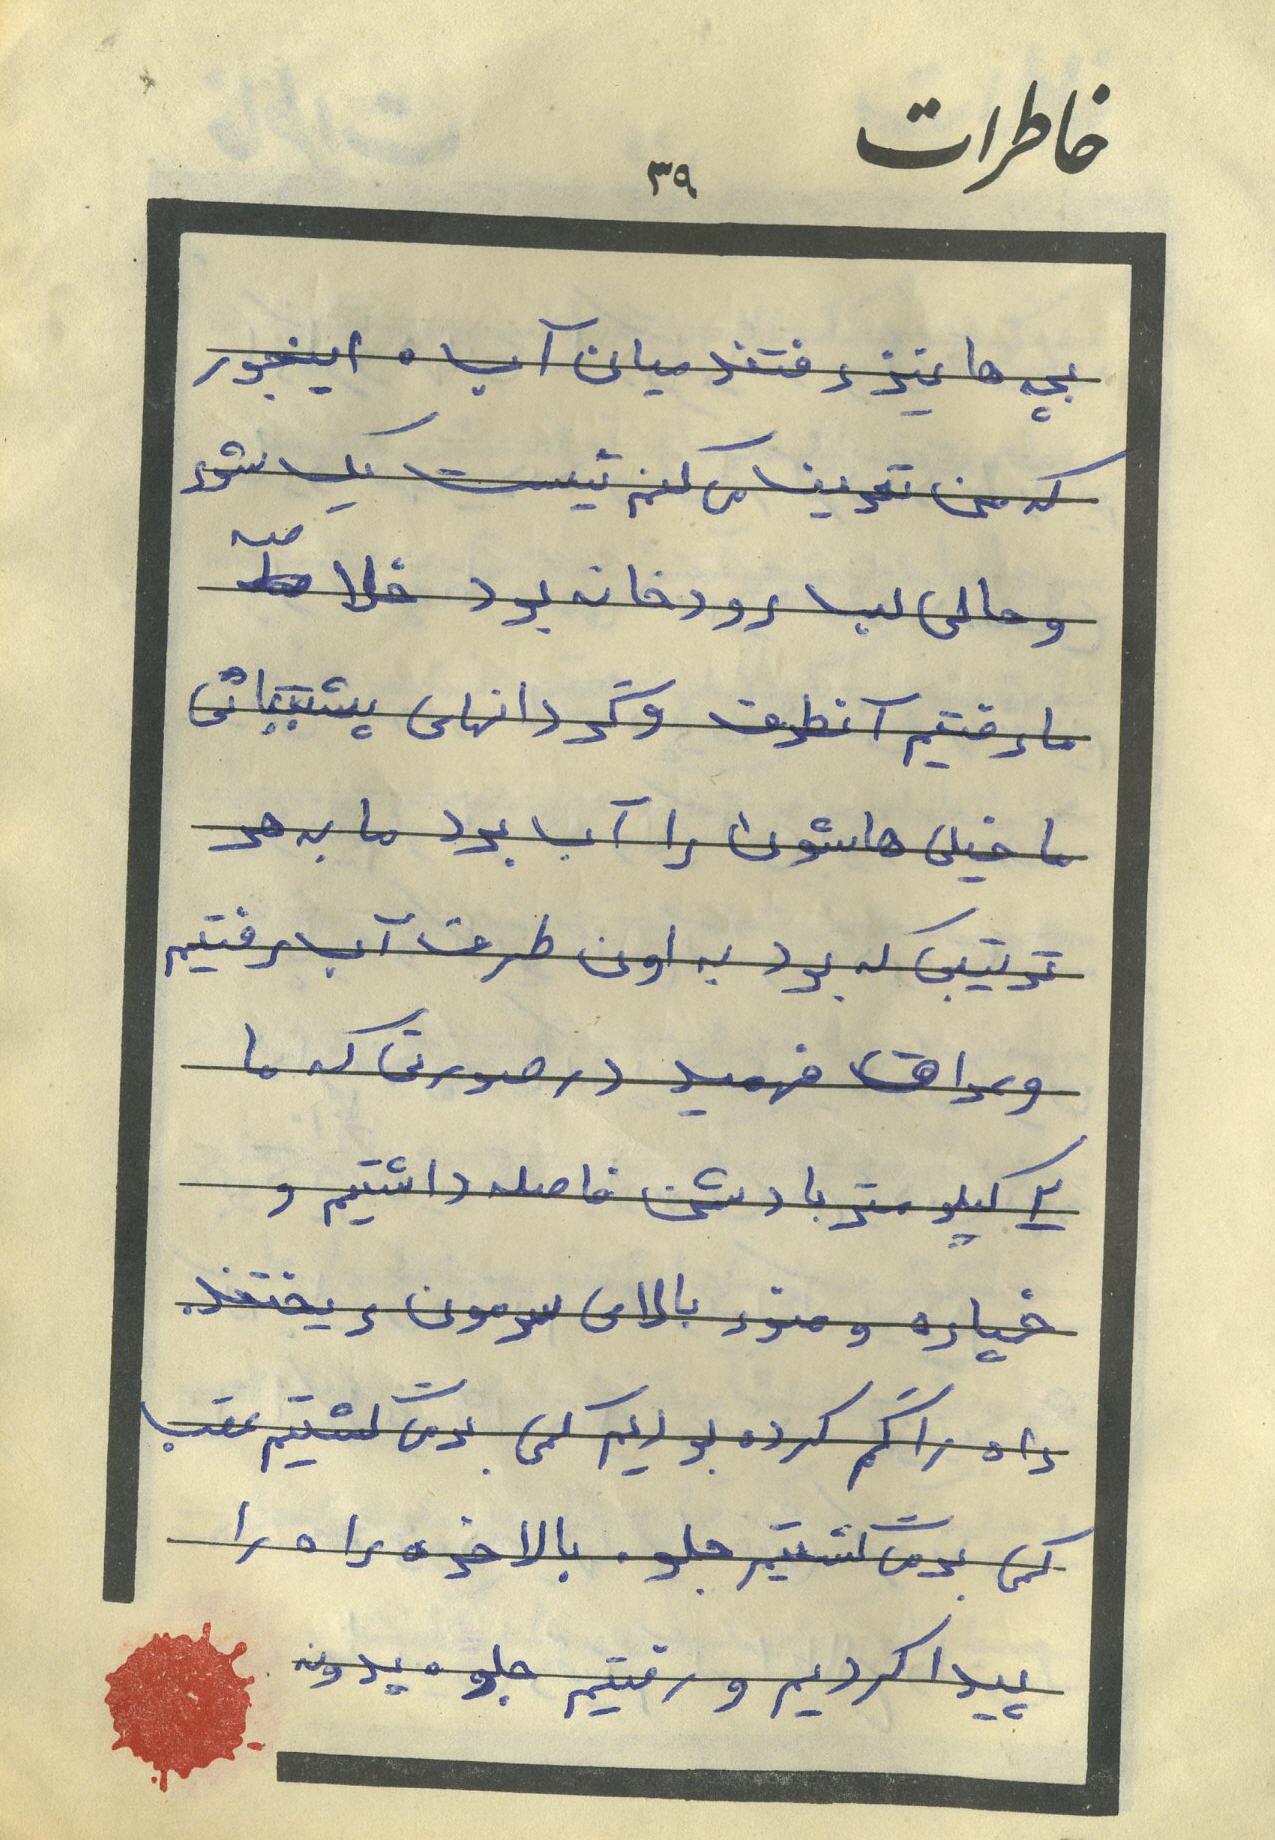 خاطرات
۳۹
بچه ها نیز رفتند میان آب ه اینجور
که من تعریف می کنم نیست یک شور
و حالی لب رودخانه بود خلاصه
ما رفتیم آنطرف و گردانهای پشتیبانی
ما خیلی هاشون را آب برد ما به هر
ترتیبی که بود به اون طرف آب رفتیم
و عراق فهمید در صورتی که ما
۲ کیلومتر با دشمن فاصله داشتیم و
خپاره و منور بالای سرمون ریختند.
راه را گم کرده بودیم کمی برمی گشتیم عقب
کمی برمی گشتیم جلو. بالاخره راه را
پیدا کردیم و رفتیم جلو ه بدونه